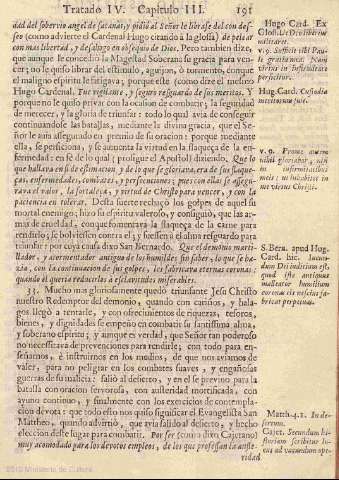 Tratado IV. Capitulo III. 191
dad del sobervio angel de satanàs, y pidiò al Señor le librase del con deſ-
seo (como advierte el Cardenal Hugo citando à la glossa) de pelear
con mas libertad, y desahogo en obsequio de Dios. Pero tambien dize,
que aunque le concediò la Magestad Soberana su gracia para ven-
cer; no le quiso librar del estimulo, aguijon, ò tormento, conque
el maligno espiritu le fatigava; porque este (como dize el mesmo
Hugo Cardenal. Fue vigilante, y seguro resguardo de sus meritos. Y
porque no le quiso privar con la ocasion de combatir; la seguridad
de merecer, y la gloria de triunfar: todo lo qual avia de conseguir
continuandose las batallas, mediante la divina gracia, que el Se-
ñor le avia assegurado en premio de su oracion: porque mediante
ella, se perficiona, y se aumenta la virtud en la flaqueza de la en-
fermedad: en fè de lo qual (prosigue el Apostol) diziendo. Que lo
que hallava en sì de estimacion, y de lo que se gloriava, era de sus flaque-
zas, enfermedades, combates, y persecuciones; pues con ellas se assegu-
rava el valor, la fortaleza, y virtud de Christo para vencer, y con la
paciencia en tolerar. Desta suerte rechazò los golpes de aquel su
mortal enemigo; hizo su espiritu valeroso, y consiguiò, que las ar-
mas de crueldad, con que fomentava la flaqueza de la carne para
rendirlo; se bolviessen contra èl; y fuessen à el alma resguardo para
triunfar: por cuya causa dixo San Bernardo. Que el demonio marti-
llador, y atormentador antiguo de los humildes sin saber, lo que se ha-
zia, con la continuacion de sus golpes, les fabricava eternas coronas:
quando èl queria reducirlos à esclavitudes miserables.
33. Mucho mas gloriosamente quedò triunfante Jesu Christo
nuestro Redemptor del demonio, quando con cariños, y hala-
gos llegò à tentarle, y con ofrecimientos de riquezas, tesoros,
bienes, y dignidades se empeñò en combatir su santissima alma,
y soberano espiritu; y aunque es verdad, que Señor tan poderoso
no necessitava de prevenciones para rendirle; con todo para en-
señarnos, è instruirnos en los medios, de que nos aviamos de
valer, para no peligrar en los combates suaves, y engañosas
guerras de su malicia: saliò al desierto, y en el se previno para la
batalla con oracion fervorosa, con austeridad mortificada, con
ayuno continuo, y finalmente con los exercicios de contempla-
cion devota: que todo esto nos quiso significar el Evangelista San
Mattheo, quando advirtiò, que avia salido al desierto, y hecho
eleccion deste lugar para combatir. Por ser (como dixo Cajetano)
muy acomodado para los devotos empleos, de los que professan la auste-
ridad
Hugo Card. Ex
Gloss.
v. 9. Sufficit tibi
gratia mea: Nam
virtus in infirmitate
perficitur.
Hug. Card. Custodia
meritorum fuit.
v. 9.
nihil gloriabor, nisi
in infirmitatibus
meis: ut inhabitet in
me virtus Christi.
S. Bern. apud Hug.
Card. hic.
dum Dei
quod iste antiquus
malleator humilium
coronas eis nesciens fa-
bricat perpetuas.
Matth. 4. 1. In de-
sertum.
Cajet. Secundum hi-
storiam scribitur lo-
cus
2010 Ministerio de Cultura